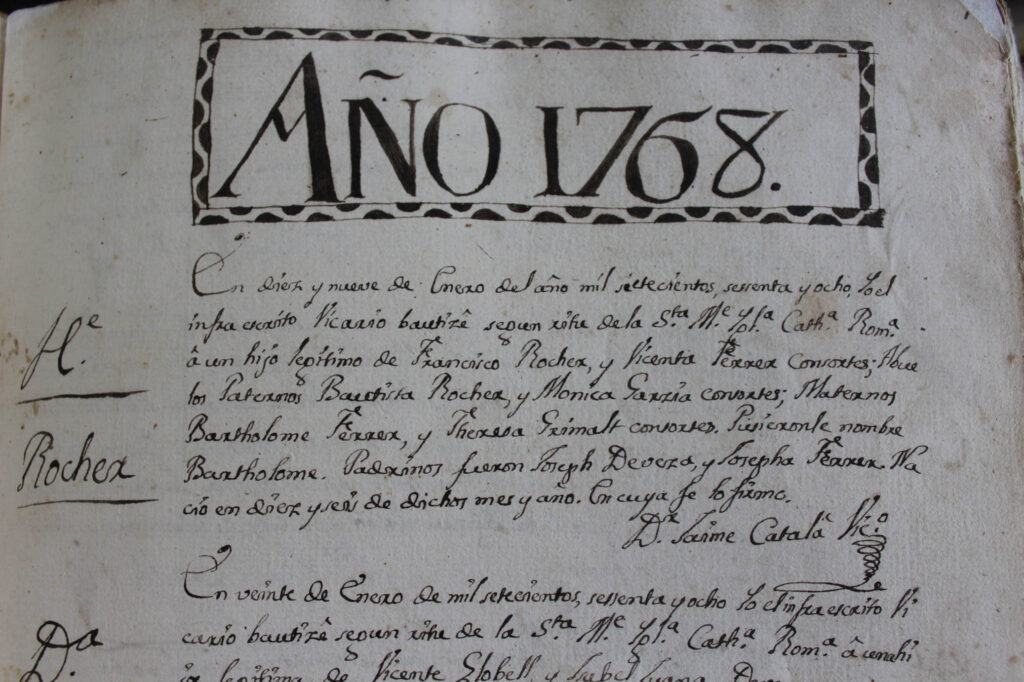 AÑO 1768.
En diez y nueve de Enero del año mil setecientos, sessenta y ocho, Yo el
infra escrito Vicario bautizê segun ritu de la S.ta M.e Igl.ª Cath.ª Rom.ª
â un hijo legitimo de Francisco Rocher, y Vicenta Ferrer consortes; Abue
los Paternos Bautista Rocher, y Monica Garzia consortes; Maternos
Bartholome Ferrer, y Theresa Grimalt consortes. Pusieronle nombre
Bartholome. Padrinos fueron Joseph Devera, y Josepha Ferrer. Na
ciò en diez y seis de dichos mes y año. En cuya fe lo firmo.
D.r Jaime Català Vic.o
H.e
Rocher
En veinte de Enero de mil setecientos, sessenta y ocho Yo el infra escrito Vi
cario bautizê segun ritu de la S.ta M.e Igl.ª Cath.ª Rom.ª â una hi
ja legitima de Vicente Llobell, y Isabel
D.ª